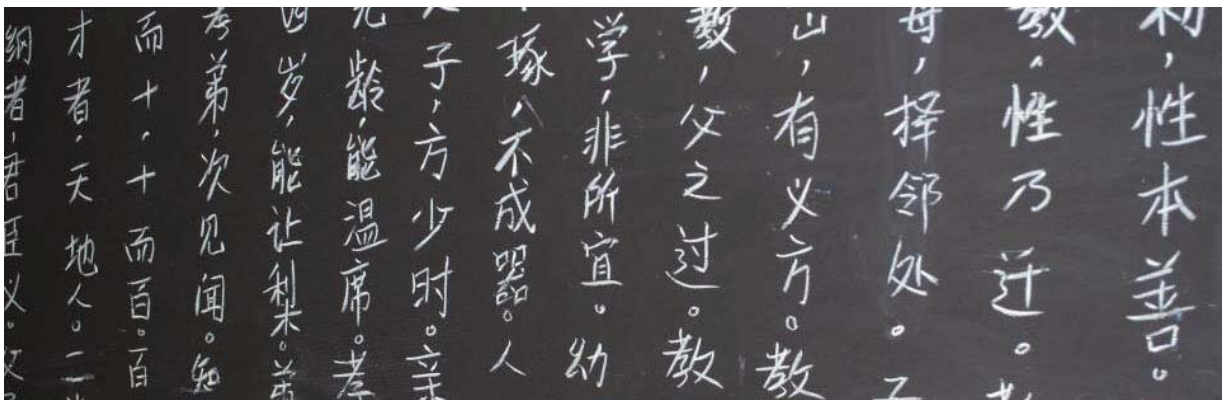 初，性本善。
教，性乃迁。
母，择邻处。子
山，有义方。教
教，父之过。教
学，非所宜。幼
琢，不成器。人
子，方少时。亲
九龄，能温席。孝
四岁，能让梨。弟
孝弟，次见闻。知
而十，十而百。百
才者，天地人。三
纲者，君臣义。父